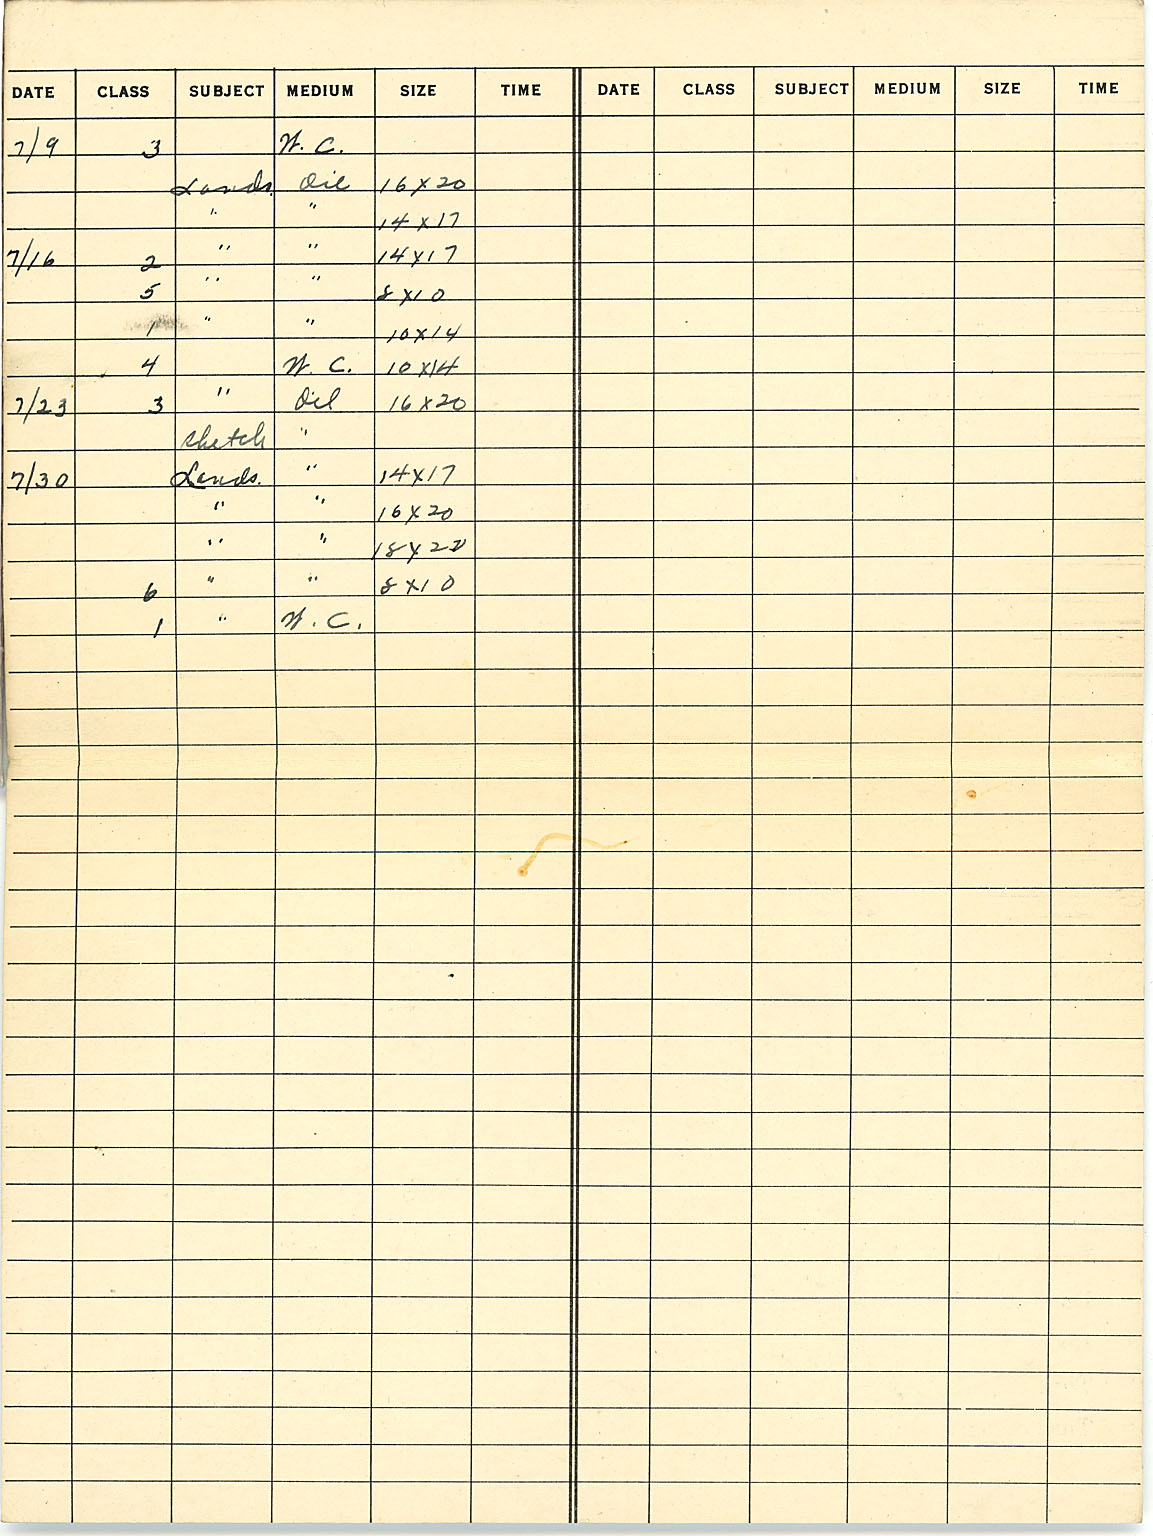 DATE CLASS SUBJECT MEDIUM SIZE TIME DATE CLASS SUBJECT MEDIUM SIZE TIME
7/9 3 W. C.
Lands. Oil 16 x 20
" " 14 x 17
7/16 2 " " 14 x 17
5 " " 8 x 10
1 " " 10 x 14
4 W. C. 10 x 14
7/23 3 " Oil 16 x 20
Sketch "
7/30 Lands. " 14 x 17
" " 16 x 20
" " 18 x
6 " " 8 x 10
1 " W. C.